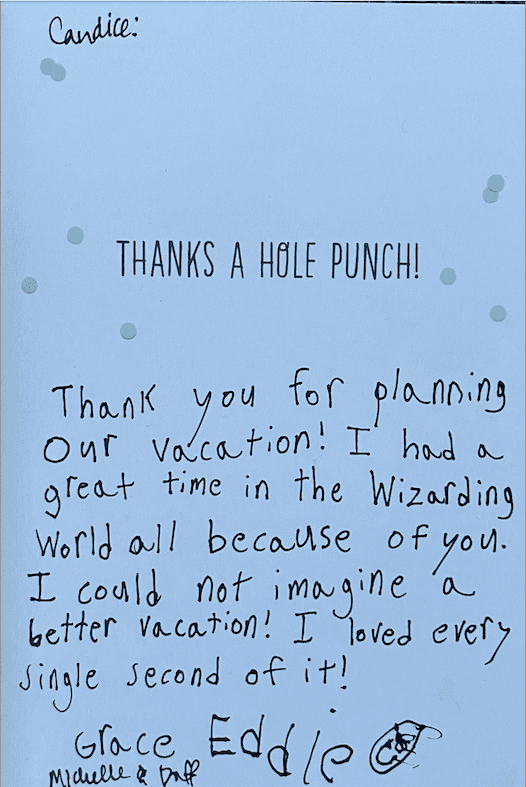 Candice:
THANKS A HOLE PUNCH!
Thank you for planning
Our vacation! I had a
great time in the Wizarding
World all because of you.
I could not imagine a
better vacation! I loved every
single second of it!
Grace Eddie
Michelle &